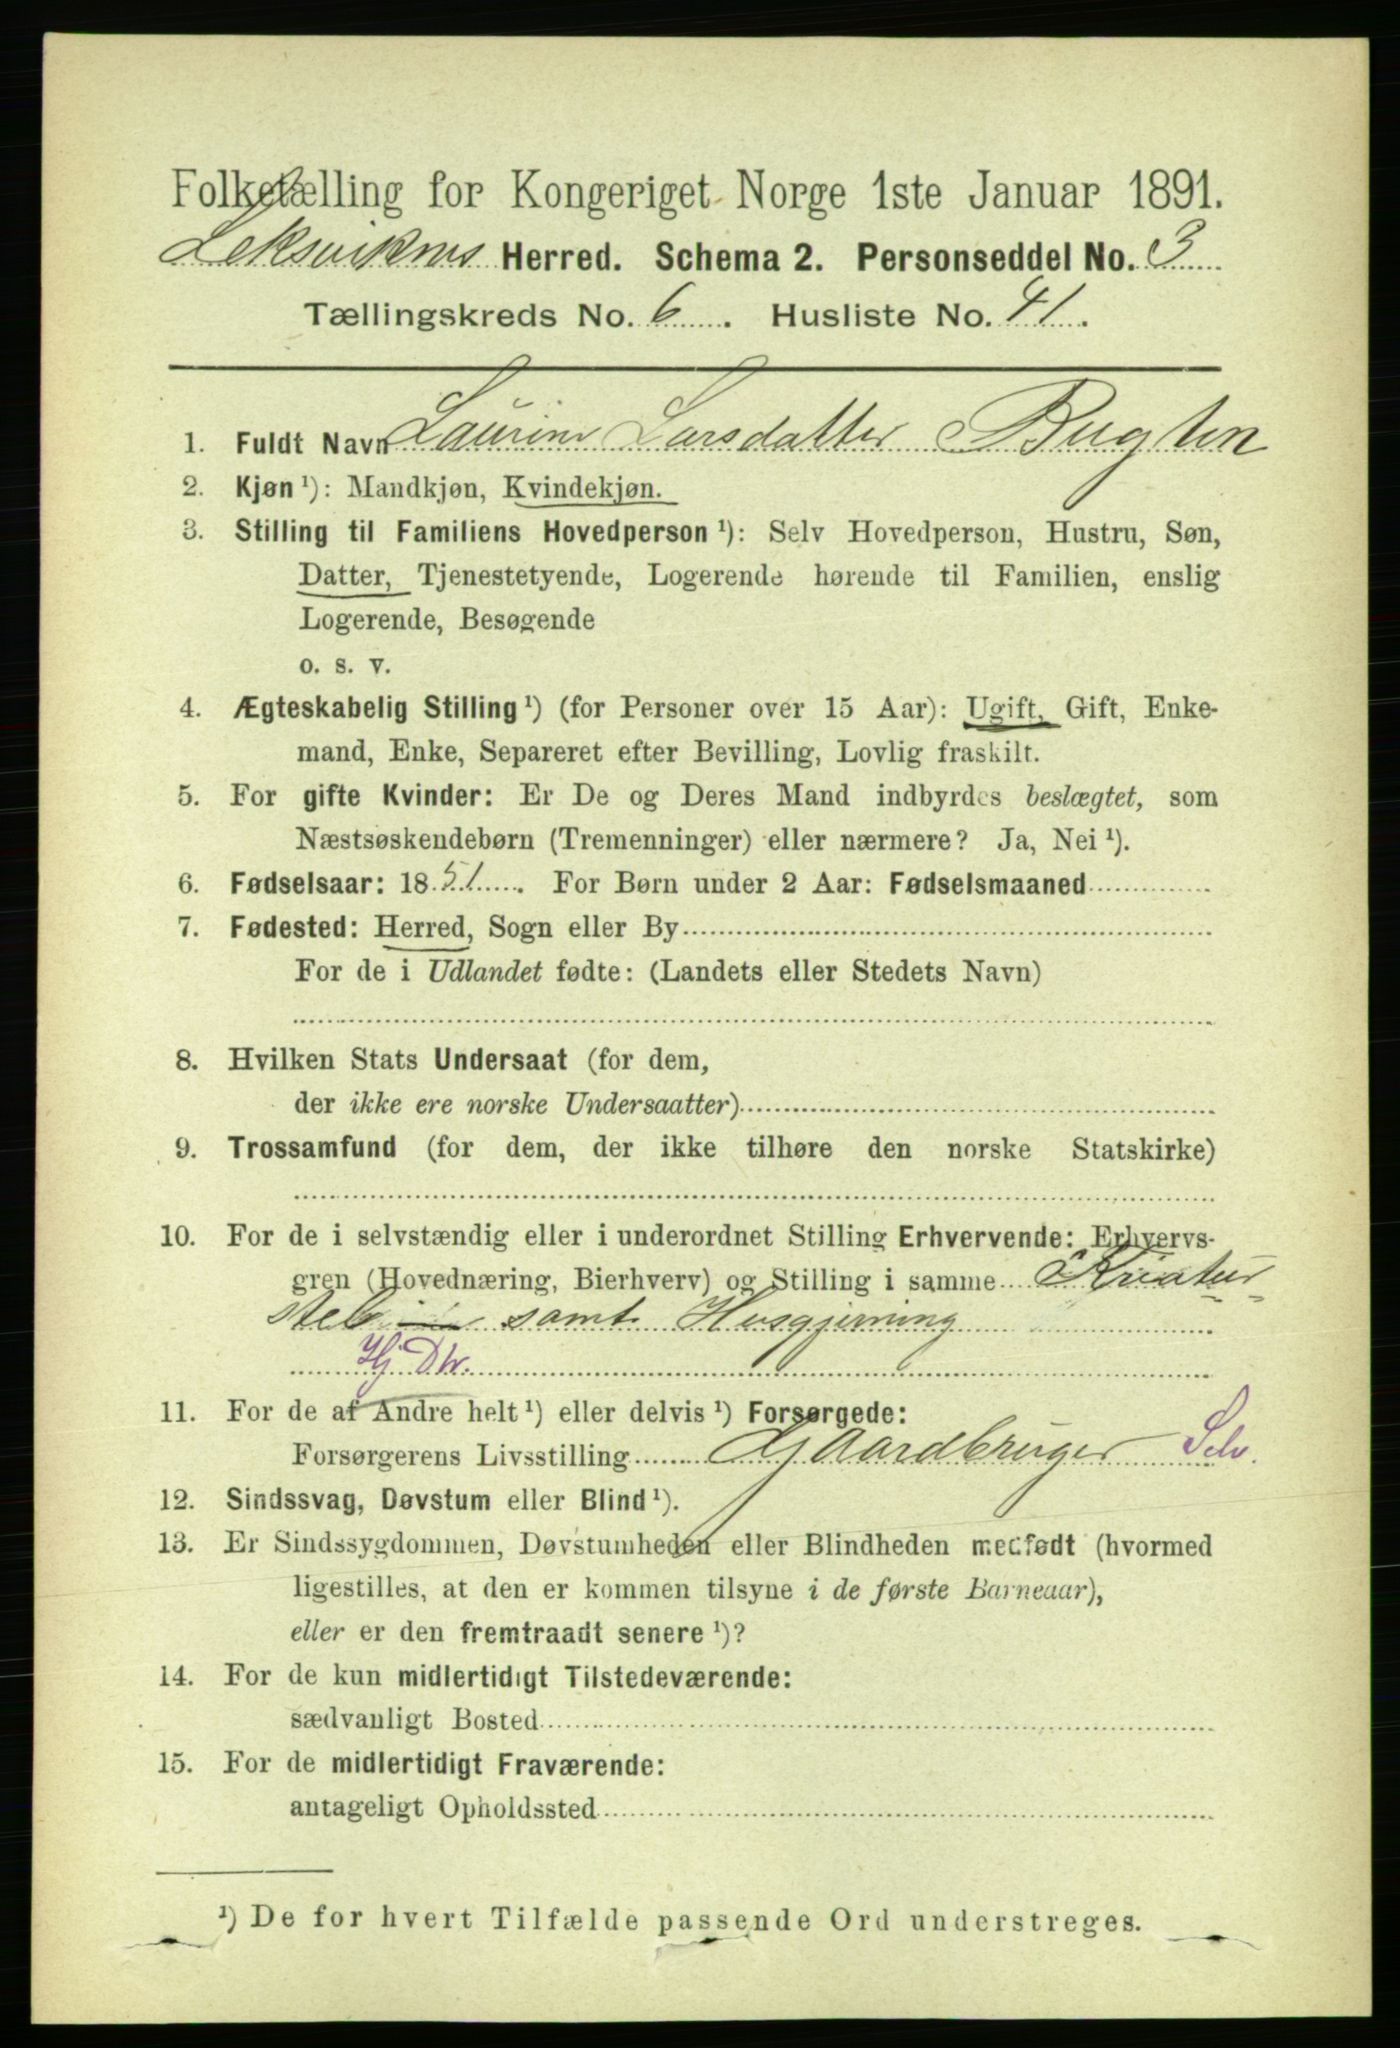 Folketælling for Kongeriget Norge 1ste Januar 1891.
Leksvikens Herred. Schema 2. Personseddel No. 3
Tællingskreds No. 6. Husliste No. 41.
1. Fuldt Navn Laurine Larsdatter Bugten
2. Kjøn ¹): Mandkjøn, Kvindekjøn.
3. Stilling til Familiens Hovedperson ¹): Selv Hovedperson, Hustru, Søn,
Datter, Tjenestetyende, Logerende hørende til Familien, enslig
Logerende, Besøgende
o. s. v.
4. Ægteskabelig Stilling ¹) (for Personer over 15 Aar): Ugift, Gift, Enke-
mand, Enke, Separeret efter Bevilling, Lovlig fraskilt.
5. For gifte Kvinder: Er De og Deres Mand indbyrdes beslægtet, som
Næstsøskendebørn (Tremenninger) eller nærmere? Ja, Nei ¹).
6. Fødselsaar: 1851. For Børn under 2 Aar: Fødselsmaaned
7. Fødested: Herred, Sogn eller By
For de i Udlandet fødte: (Landets eller Stedets Navn)
8. Hvilken Stats Undersaat (for dem,
der ikke ere norske Undersaatter)
9. Trossamfund (for dem, der ikke tilhøre den norske Statskirke)
10. For de i selvstændig eller i underordnet Stilling Erhvervende: Erhvervs-
gren (Hovednæring, Bierhverv) og Stilling i samme Kreatur-
stel samt Husgjerning
Hj. Dtr.
11. For de af Andre helt ¹) eller delvis ¹) Forsørgede:
Forsørgerens Livsstilling Gaardbruger Selv.
12. Sindssvag, Døvstum eller Blind ¹).
13. Er Sindssygdommen, Døvstumheden eller Blindheden medfødt (hvormed
ligestilles, at den er kommen tilsyne i de første Barneaar),
eller er den fremtraadt senere ¹)?
14. For de kun midlertidigt Tilstedeværende:
sædvanligt Bosted
15. For de midlertidigt Fraværende:
antageligt Opholdssted
¹) De for hvert Tilfælde passende Ord understreges.